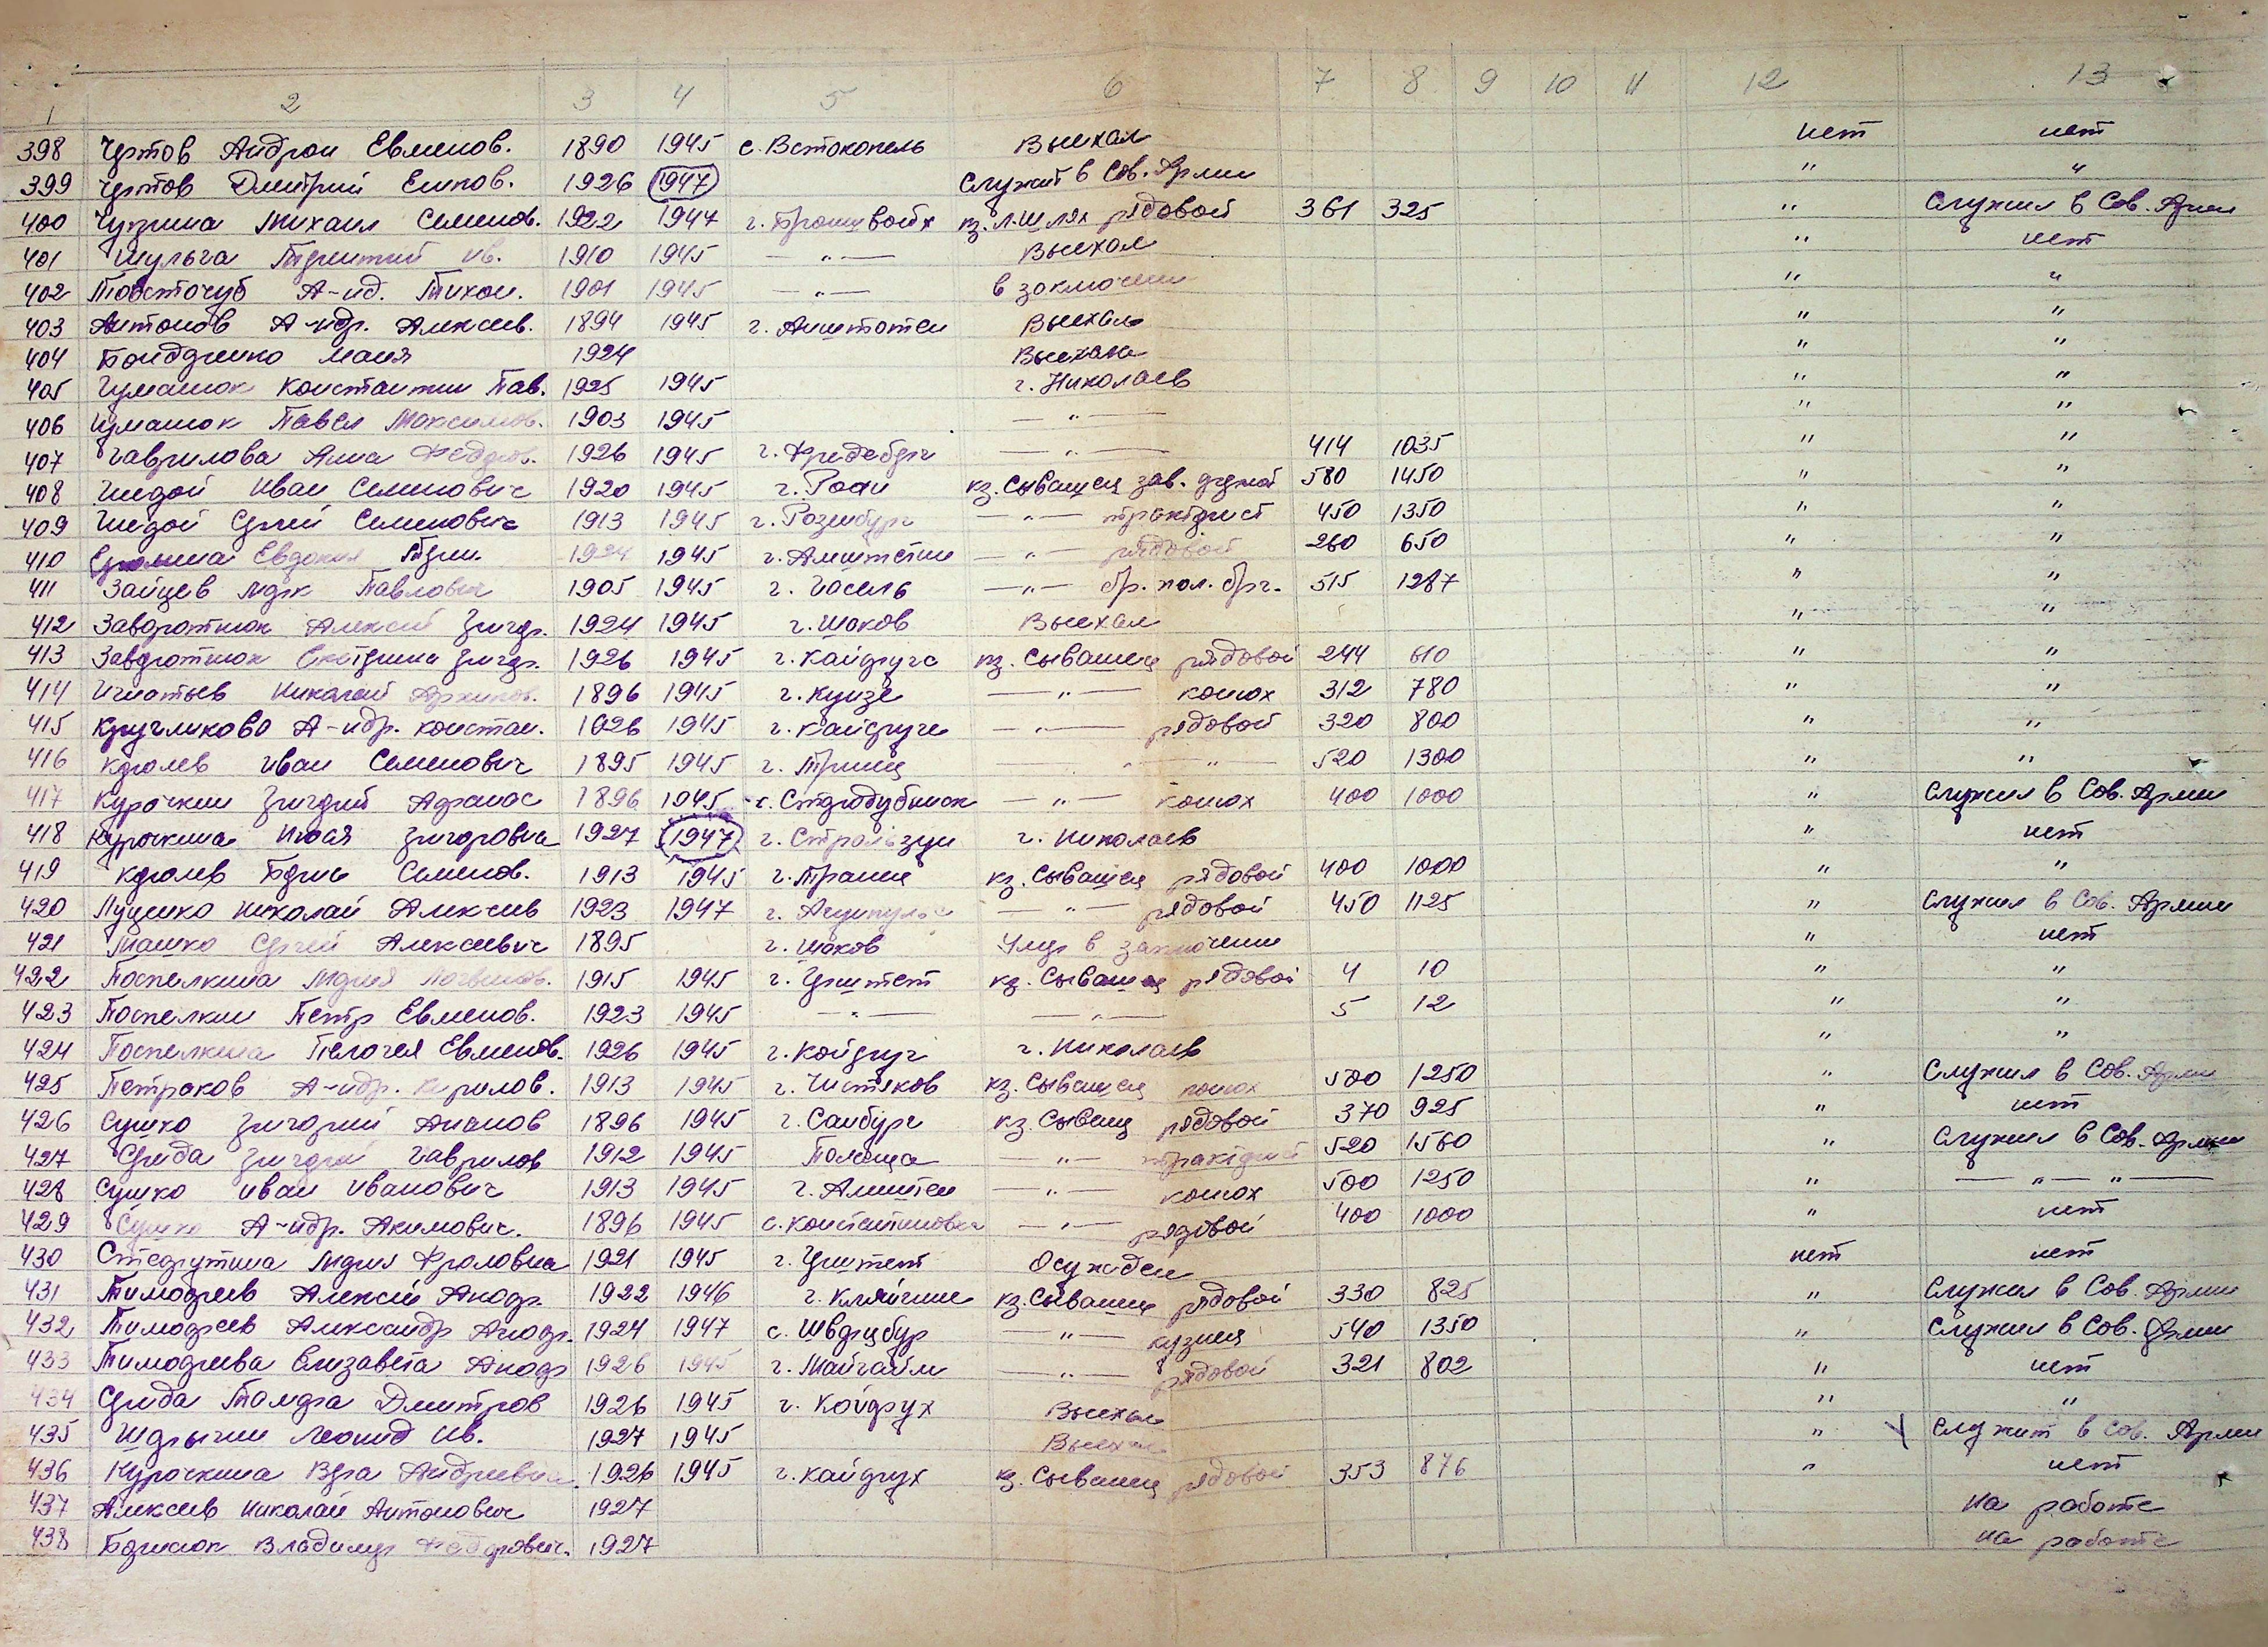 1 2 3 4 5 6 7 8 9 10 11 12 13
398 Чертов Андрон Евменов. 1890 1945 с. Встокопель Выехал нет нет
399 Чертов Дмитрий Емнов. 1926 1947 Служит в Сов. Армии " "
400 Чуприна Михаил Семенов. 1922 1947 кз. л. Шлях рядовой 361 325 " Служил в Сов. Армии
401 Шульга Ив. 1910 1945 —"— Выехал " нет
402 Товсточуб А-нд. Тихон. 1901 1945 —"— в заключении " "
403 Антонов А-ндр. Алексеев. 1894 1945 г. Анштотен Выехал " "
404 Бондаренко Мания 1924 Выехала " "
405 Гуманюк Константин Пав. 1925 1945 г. Николаев " "
406 Гуманюк Павел Максимов. 1903 1945 —"— " "
407 Гаврилова Анна Федоров. 1926 1945 г. Фридеберг —"— 414 1035 " "
408 Гнедой Иван Семенович 1920 1945 г. кз. Сывашец зав. 580 1450 " "
409 Гнедой Сергей Семенович 1913 1945 г. Розенбург —"— тракторист 450 1350 " "
410 Евдокия 1924 1945 г. Амштетин —"— рядовой 260 650 " "
411 Зайцев Марк Павлович 1905 1945 г. Гасель —"— бр. пол. бриг. 515 1287 " "
412 Заворотнюк Алексей Григор. 1924 1945 г. Шаков Выехал " "
413 Заворотнюк Екатерина Григор. 1926 1945 г. Кайзеруге кз. Сывашец рядовой 244 610 " "
414 Игнатьев Николай Архипов. 1896 1945 г. Кунзе —"— конюх 312 780 " "
415 Кругликова А-ндр. Констан. 1926 1945 г. Кайзеруге —"— рядовой 320 800 " "
416 Королев Иван Семенович 1895 1945 г. —"— " 520 1300 " "
417 Курочкин Григорий Афанас 1896 1945 с. Стародубинск —"— конюх 400 1000 " Служил в Сов. Армии
418 Курочкина Григоровна 1927 1947 г. Стральзун г. Николаев " нет
419 Королев Борис Семенов. 1913 1945 г. кз. Сывашец рядовой 400 1000 " "
420 Луценко Николай Алексеев 1923 1947 г. —"— рядовой 450 1125 " Служил в Сов. Армии
421 Машко Сергей Алексеевич 1895 г. Шаков Умер в заключении " нет
422 Поспелкина Мария 1915 1945 г. Грштет кз. Сывашец рядовой 4 10 " "
423 Поспелкин Петр Евменов. 1923 1945 —"— —"— 5 12 " "
424 Поспелкина Пелагея Евменов. 1926 1945 г. Койзруг г. Николаев " "
425 Петраков А-ндр. Кирилов. 1913 1945 г. Чистяков кз. Сывашец конюх 500 1250 " Служил в Сов. Армии
426 Сушко Григорий Ананов 1896 1945 г. Санбург кз. Сываш рядовой 370 925 " нет
427 Середа Григорий Гаврилов 1912 1945 Польша —"— тракторист 520 1560 " Служил в Сов. Армии
428 Сушко Иван Иванович 1913 1945 г. Амштен —"— конюх 500 1250 " — " — " —
429 Сушко А-ндр. Акимович. 1896 1945 с. Константиновка —"— рядовой 400 1000 " нет
430 Мария Фроловна 1921 1945 г. Грштет Осужден нет нет
431 Тимофеев Алексей 1922 1946 г. кз. Сывашец рядовой 330 825 " Служил в Сов. Армии
432 Тимофеев Александр 1924 1947 с. —"— кузнец 540 1350 " Служил в Сов. Армии
433 Тимофеева Елизавета 1926 1945 г. Майгайм —"— рядовой 321 802 " нет
434 Середа Тамара Дмитров 1926 1945 г. Койзерух Выехал " "
435 Леонид Ив. 1927 1945 Выехал " Служит в Сов. Армии
436 Курочкина Вера Андреевна 1926 1945 г. Кайзерух кз. Сывашец рядовой 353 876 " нет
437 Алексеев Николай Антонович 1927 на работе
438 Борисюк Владимир Федорович. 1927 на работе